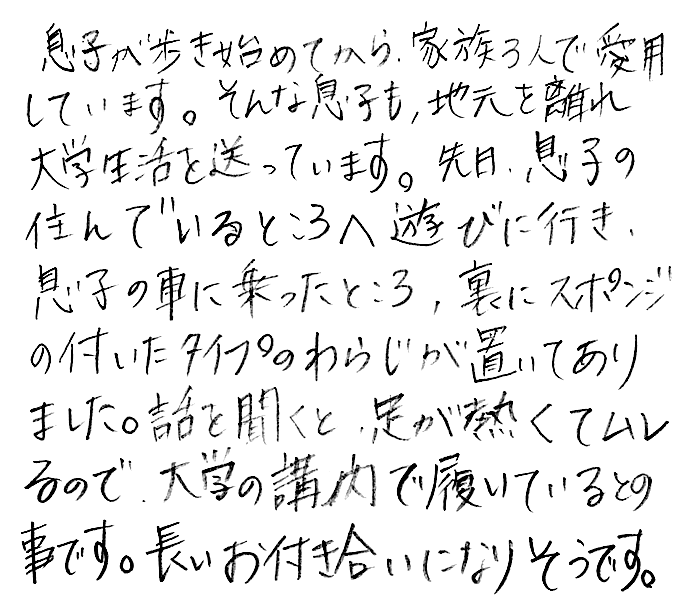 息子が歩き始めてから、家族3人で愛用
しています。そんな息子も、地元を離れ
大学生活を送っています。先日、息子の
住んでいるところへ遊びに行き、
息子の車に乗ったところ、裏にスポンジ
の付いたタイプのわらじが置いてあり
ました。話を聞くと、足が熱くてムレ
るので、大学の講内で履いているとの
事です。長いお付き合いになりそうです。